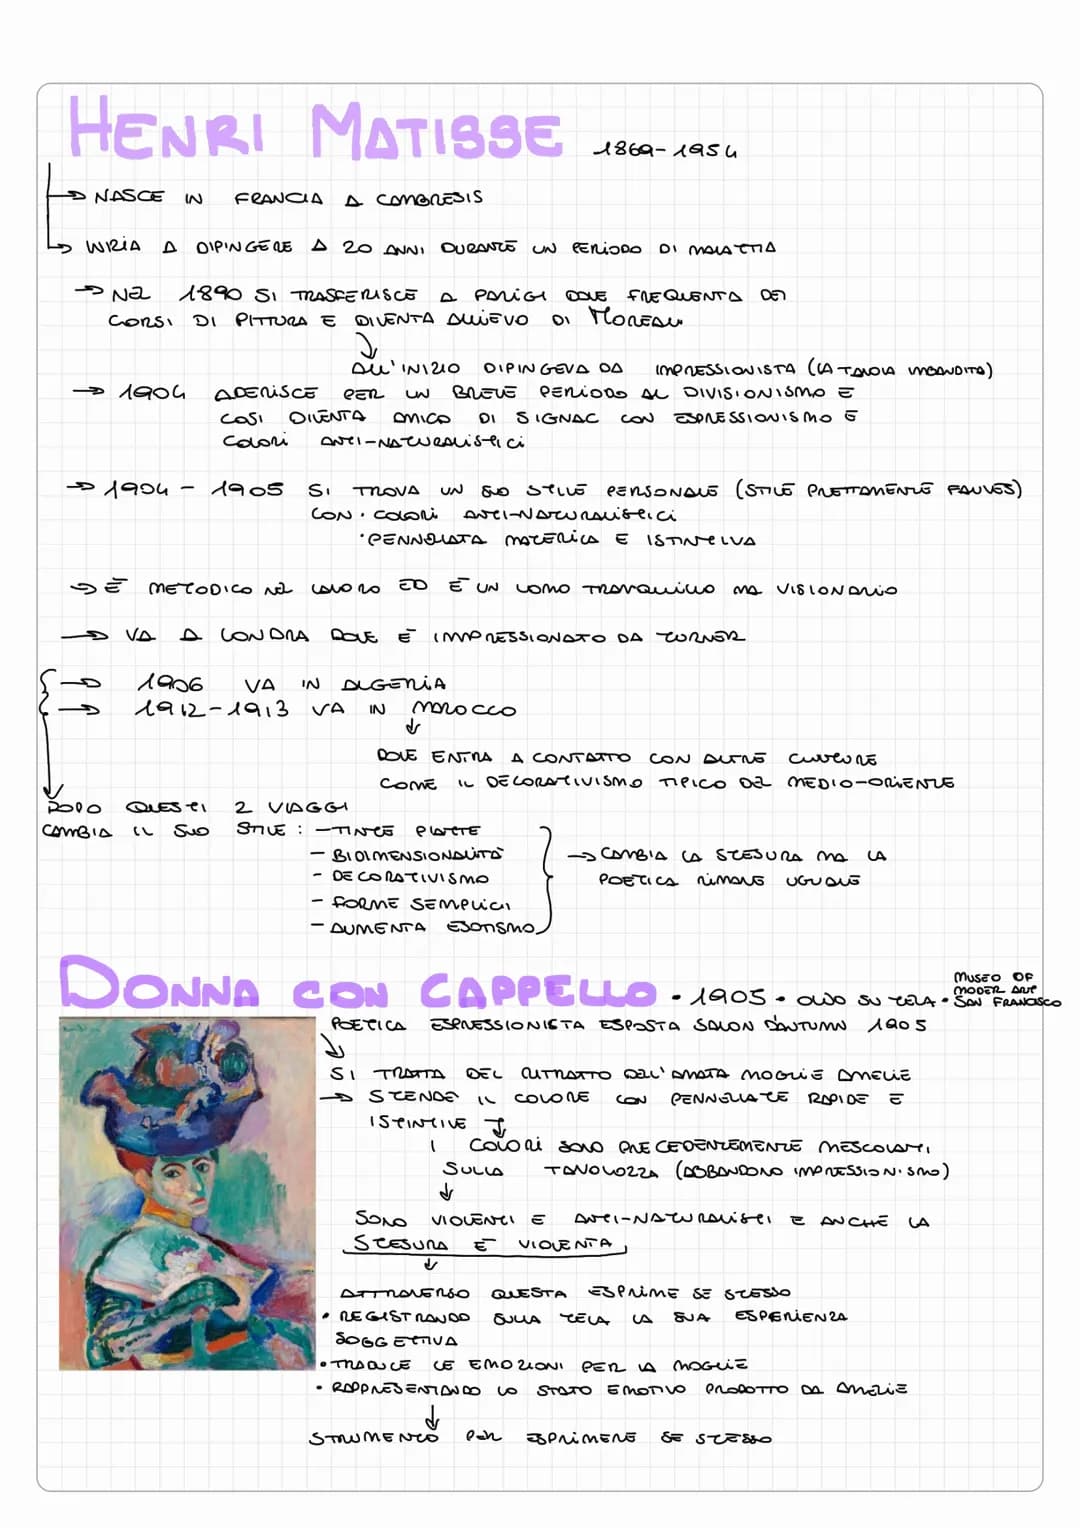 HENRI MATISSE 1869-1954
→ NASCE IN FRANCIA A CAMBRESIS
→ INIZIA A DIPINGERE A 20 ANNI DURANTE UN PERIODO DI MALATTIA
→ NEL 1890 SI TRASFERISCE A PARIGI DOVE FREQUENTA DEI
CORSI DI PITTURA E DIVENTA ALLIEVO DI MOREAU
ALL'INIZIO DIPINGEVA DA IMPRESSIONISTA (LA TAVOLA IMBANDITA)
→ 1904 ADERISCE PER UN BREVE PERIODO AL DIVISIONISMO E
COSì DIVENTA AMICO DI SIGNAC CON ESPRESSIONISMO E
COLORI ANTI-NATURALISTICI
→ 1904 - 1905 SI TROVA UN SUO STILE PERSONALE (STILE PRETTAMENTE FAUVES)
CON • COLORI ANTI-NATURALISTICI
• PENNELLATA MATERICA E ISTINTIVA
→ È METODICO NEL LAVORO ED È UN UOMO TRANQUILLO MA VISIONARIO
→ VA A LONDRA DOVE È IMPRESSIONATO DA TURNER
→ 1906 VA IN ALGERIA
→ 1912-1913 VA IN MAROCCO
DOVE ENTRA A CONTATTO CON ALTRE CULTURE
COME IL DECORATIVISMO TIPICO DEL MEDIO-ORIENTE
DOPO QUESTI 2 VIAGGI
CAMBIA IL SUO STILE : - TINTE PIATTE
- BIDIMENSIONALITÀ
- DECORATIVISMO
- FORME SEMPLICI
- AUMENTA ESOTISMO
→ CAMBIA LA STESURA MA LA
POETICA RIMANE UGUALE
DONNA CON CAPPELLO • 1905 • OLIO SU TELA • MUSEO OF
MODER ART
SAN FRANCISCO
POETICA ESPRESSIONISTA ESPOSTA SALON D'AUTUMN 1905
SI TRATTA DEL RITRATTO DELL'AMATA MOGLIE AMELIE
→ STENDE IL COLORE CON PENNELLATE RAPIDE E
ISTINTIVE
I COLORI SONO PRECEDENTEMENTE MESCOLATI
SULLA TAVOLOZZA (ABBANDONO IMPRESSIONISMO)
SONO VIOLENTI E ANTI-NATURALISTI E ANCHE LA
STESURA È VIOLENTA
ATTRAVERSO QUESTA ESPRIME SE STESSO
• REGISTRANDO SULLA TELA LA SUA ESPERIENZA
SOGGETTIVA
• TRADUCE LE EMOZIONI PER LA MOGLIE
• RAPPRESENTANDO LO STATO EMOTIVO PRODOTTO DA AMELIE
STRUMENTO PER ESPRIMERE SE STESSO